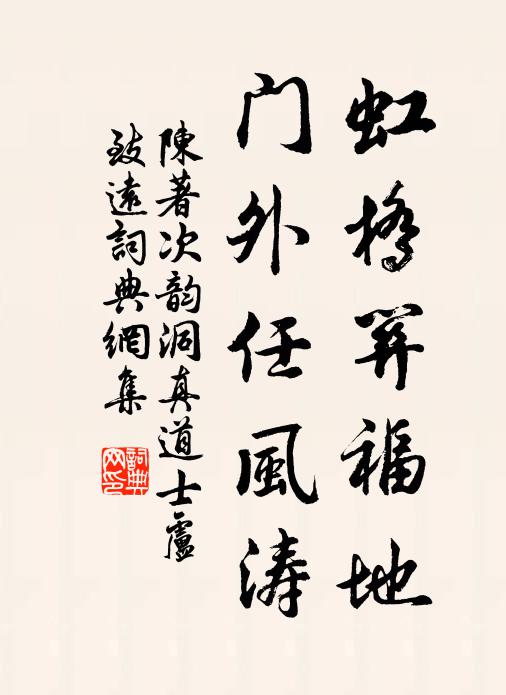 虹橋開福地
门外任風涛
陳著次韵洞真道士盧
致遠詞典網集
詞典网印